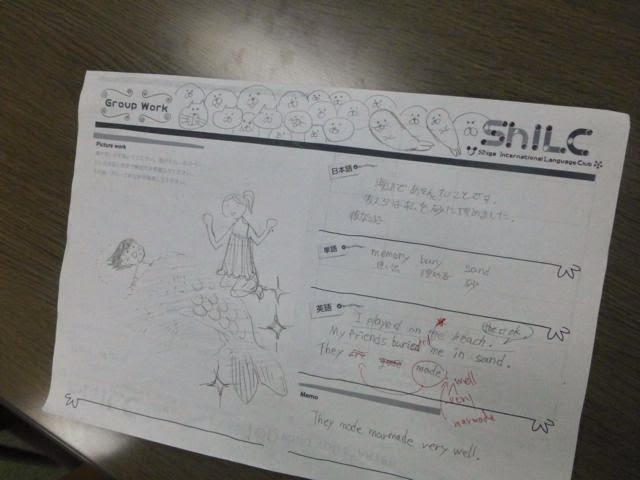 Group Work
ShILC
Shiga International Language Club
Picture work
日本語
海辺であそんだことです。
友だちは私を砂に埋めました。
単語
memory bury sand
思い出 埋める 砂
英語
I played on the beach.
the ok
My friends buried me in sand.
They are good made well
very
marmade
Memo
They made marmade very well.